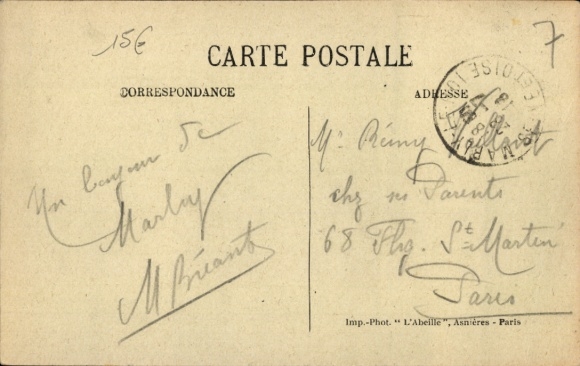 15€
7
CARTE POSTALE
CORRESPONDANCE
ADRESSE
Un bonjour de
Marly
M Briant
Mr Rémy
chez ses Parents
68 Fbg. St-Martin
Paris
Imp.-Phot. "L'Abeille", Asnières - Paris